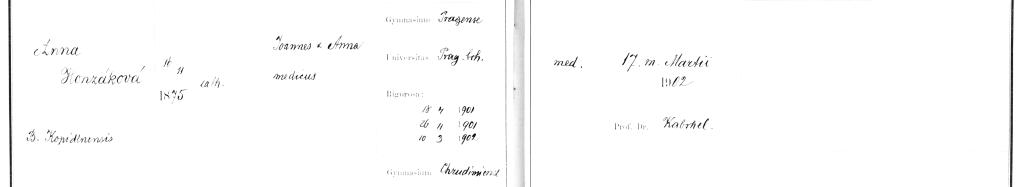 Gymnasium Pragense
Anna
Honzáková
11
11
1875
cath.
Joannes & Anna
medicus
Universitas Prag. boh.
Rigorosa:
18 4 1901
26 11 1901
10 3 1902
B. Kopidlnensis
Gymnasium Chrudimiense
med.
17. m. Martii
1902
Prof. Dr. Kabrhel.